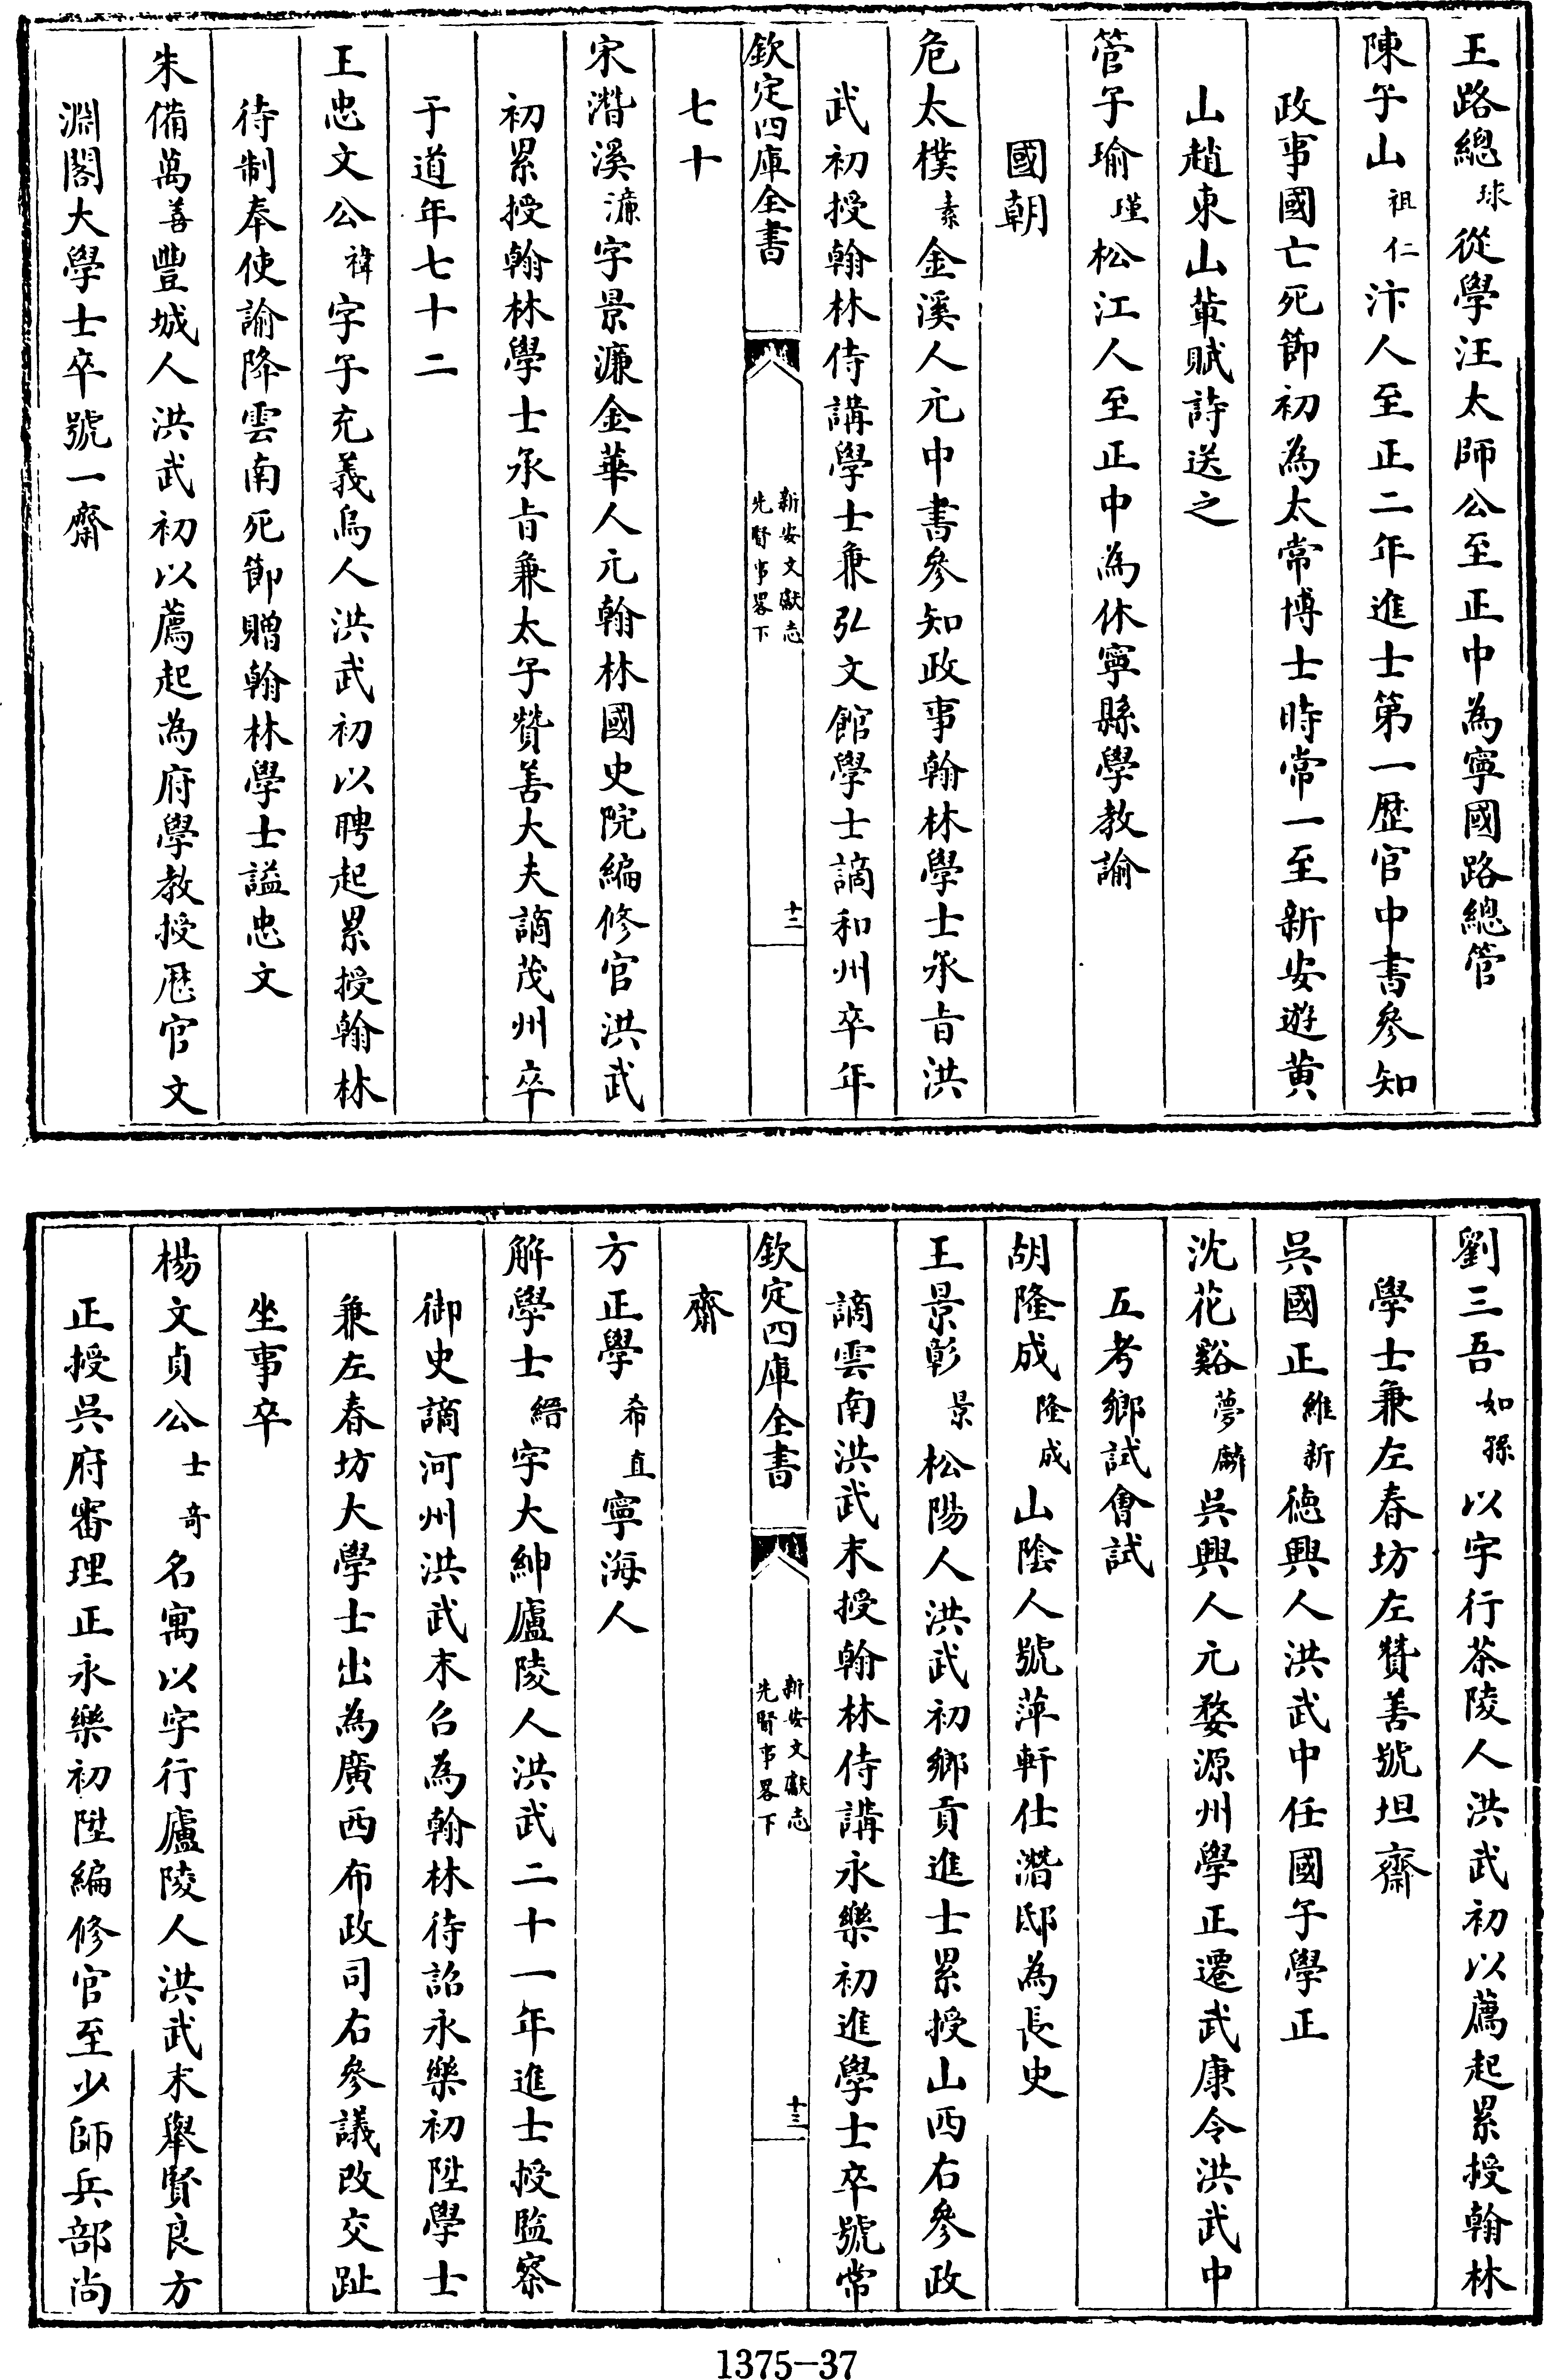 王路總球從學汪太師公至正中為寧國路總管
陳子山祖仁汴人至正二年進士第一歷官中書參知
政事國亡死節初為太常博士時常一至新安遊黄
山趙東山輩賦詩送之
管子瑜瑾松江人至正中為休寧縣學教諭
國朝
危太樸素金溪人元中書參知政事翰林學士承旨洪
武初授翰林侍講學士兼弘文館學士謫和州卒年
欽定四庫全書
新安文獻志
先賢事畧下
十二
七十
宋濳溪濂字景濂金華人元翰林國史院編修官洪武
初累授翰林學士承旨兼太子贊善大夫謫茂州卒
于道年七十二
王忠文公禕字子充義烏人洪武初以聘起累授翰林
待制奉使諭降雲南死節贈翰林學士諡忠文
朱備萬善豐城人洪武初以薦起為府學教授歴官文
淵閣大學士卒號一齋
劉三吾如孫以字行茶陵人洪武初以薦起累授翰林
學士兼左春坊左贊善號坦齋
吳國正維新徳興人洪武中任國子學正
沈花谿夢麟吳興人元婺源州學正遷武康令洪武中
五考鄉試會試
胡隆成隆成山陰人號萍軒仕潛邸為長史
王景彰景松陽人洪武初鄉貢進士累授山西右參政
謫雲南洪武末授翰林侍講永樂初進學士卒號常
欽定四庫全書
新安文獻志
先賢事畧下
十三
齋
方正學希直寧海人
解學士縉字大紳廬陵人洪武二十一年進士授監察
御史謫河州洪武末召為翰林待詔永樂初陞學士
兼左春坊大學士出為廣西布政司右參議改交趾
坐事卒
楊文貞公士奇名寓以字行廬陵人洪武末舉賢良方
正授吳府審理正永樂初陞編修官至少師兵部尚
1375-37